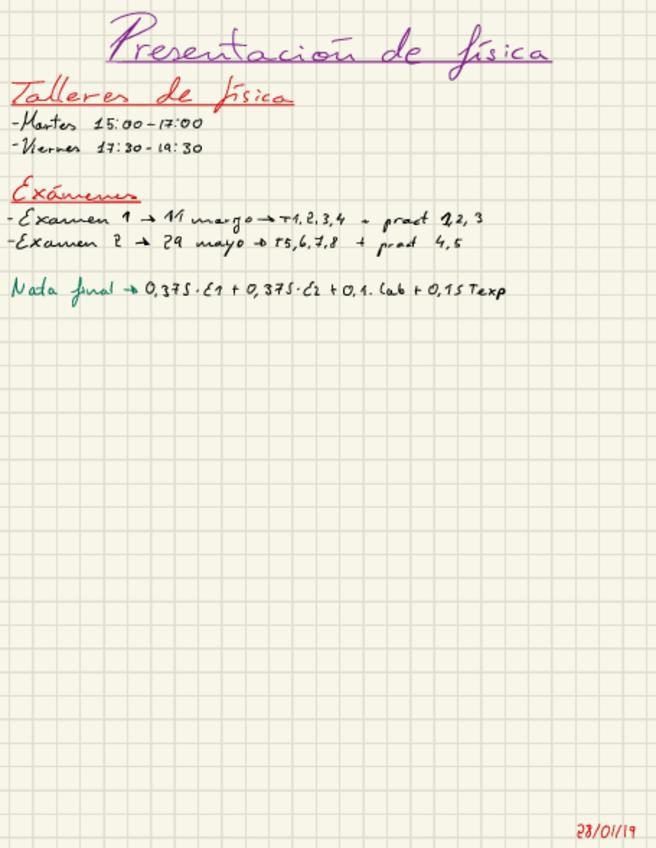 Presentación de física
Talleres de física
-Martes 15:00-17:00
-Viernes 17:30-19:30
Exámenes
-Examen 1 → 11 marzo → T1,2,3,4 + pract 1,2,3
-Examen 2 → 29 mayo → T5,6,7,8 + pract 4,5
Nota final → 0,375·E1 + 0,375·E2 + 0,1·lab + 0,15 Texp
28/01/19